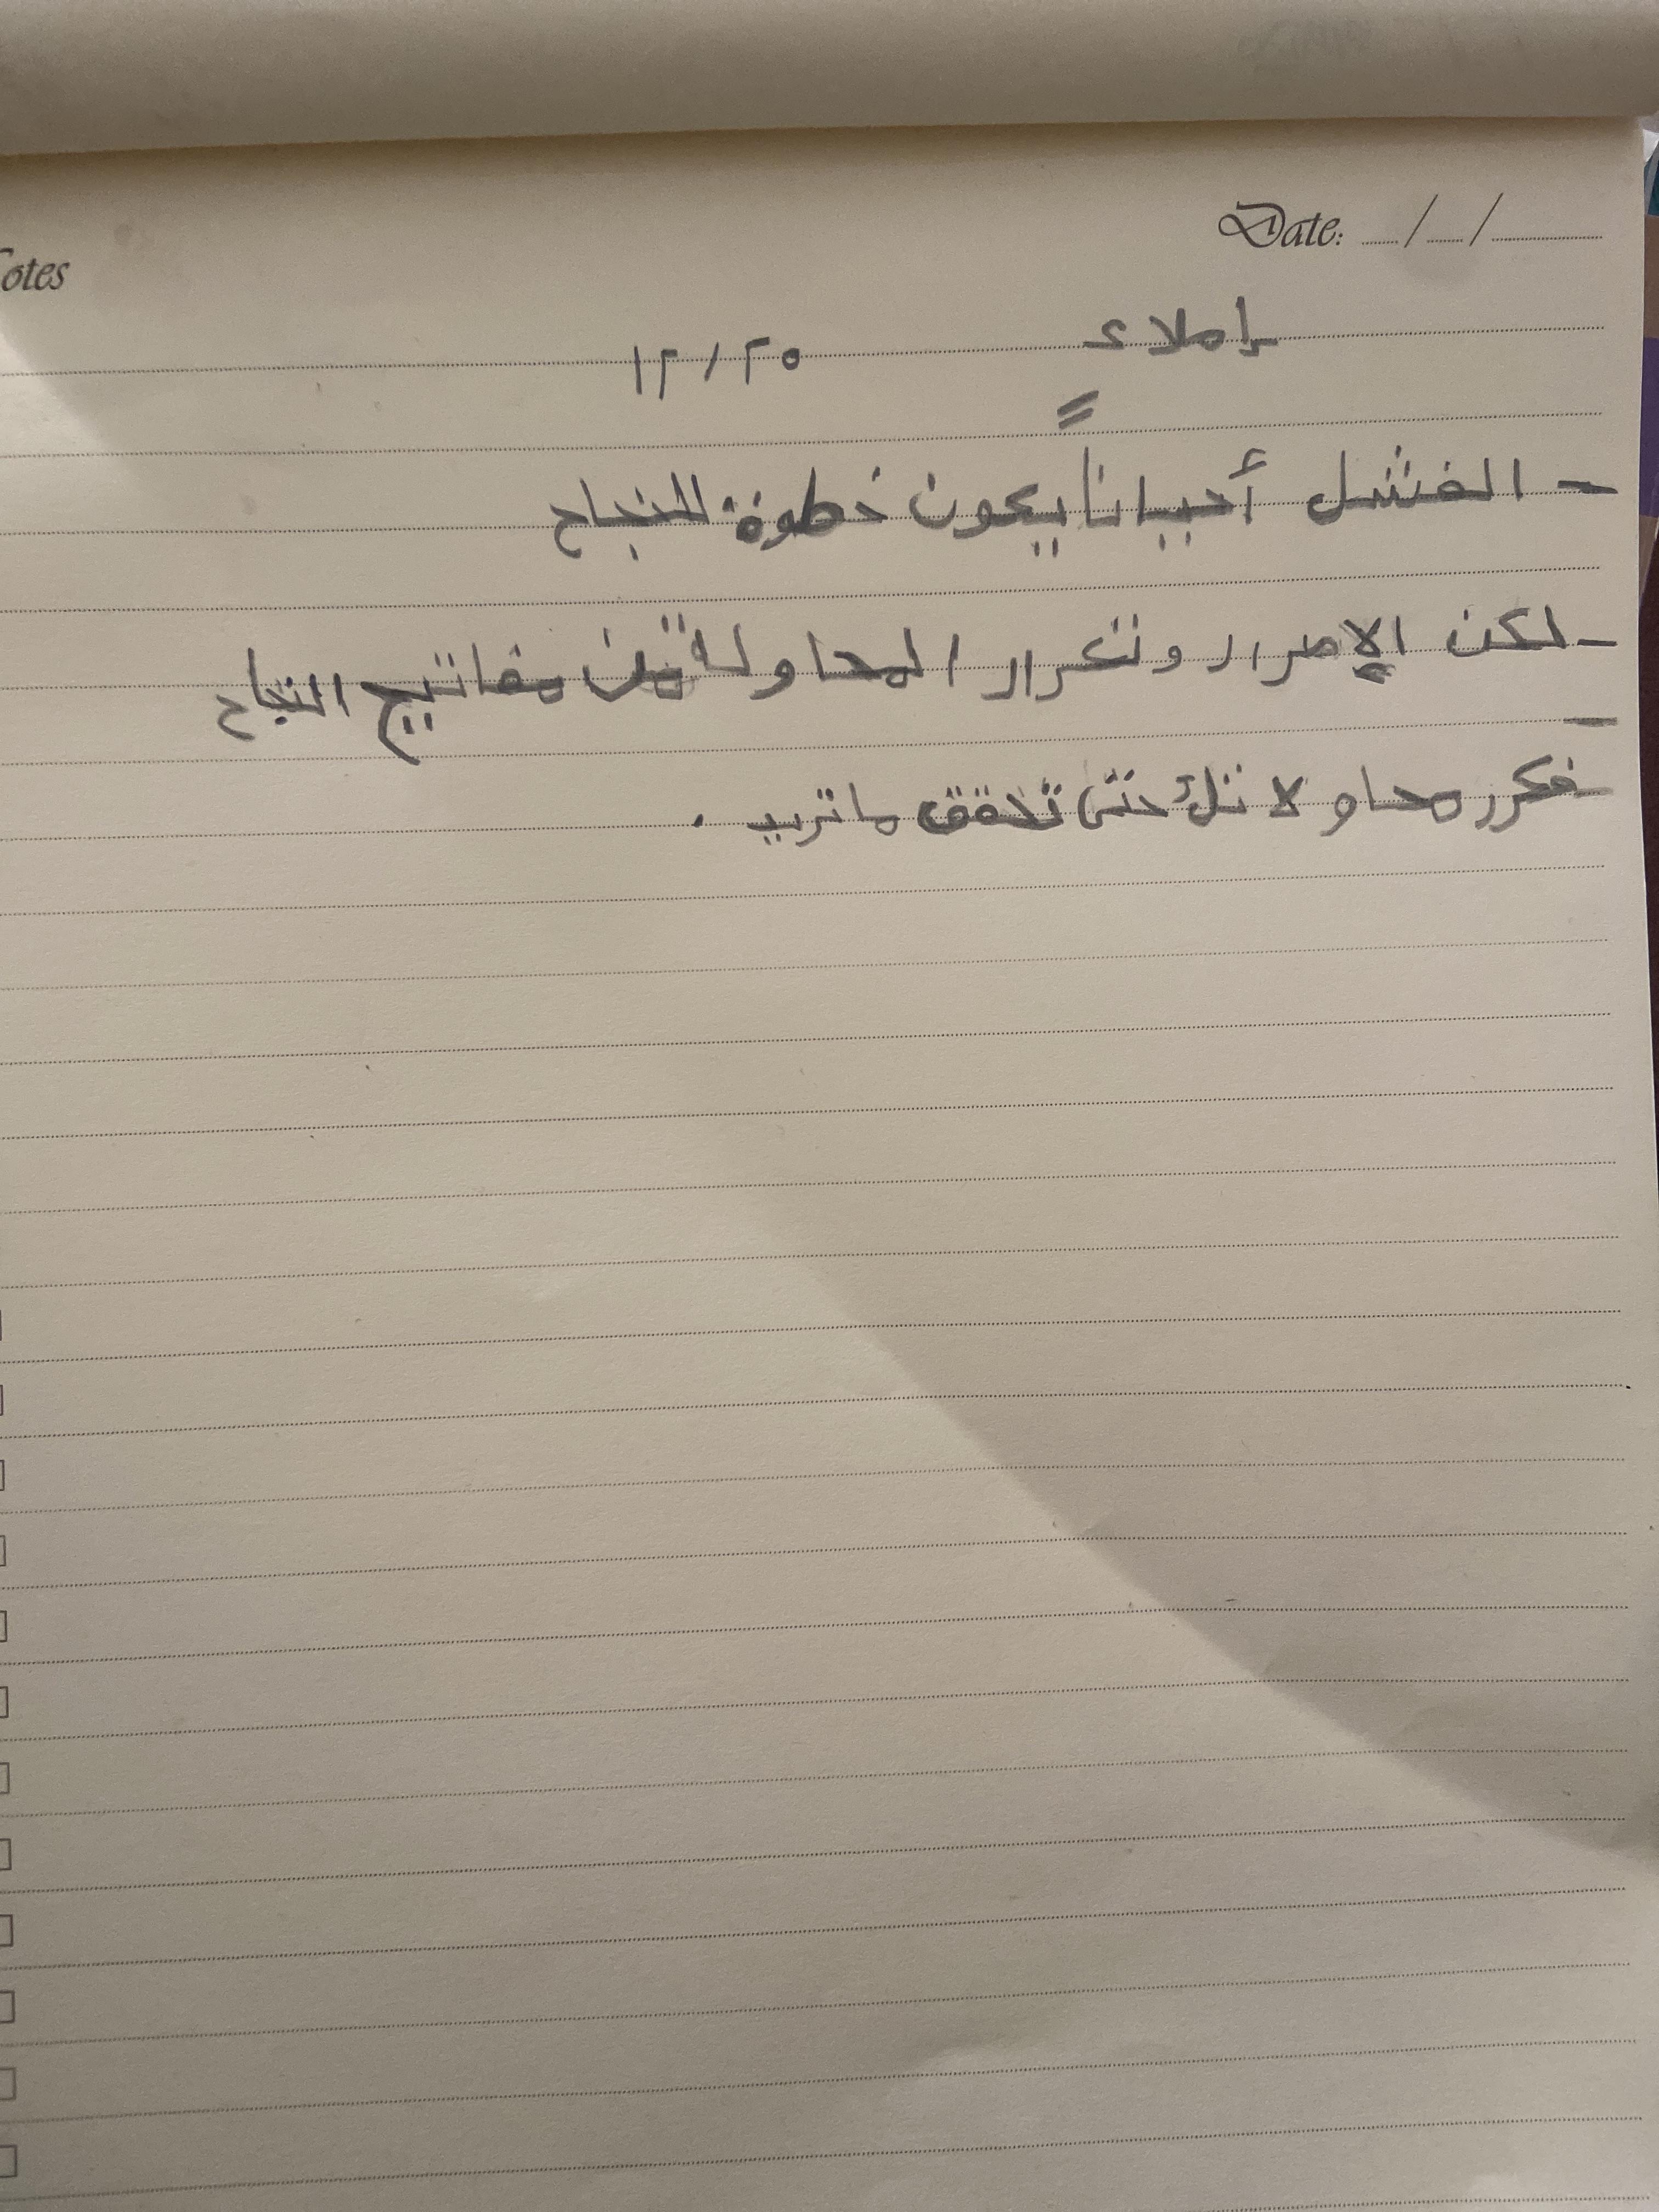 Date: __/__/____
otes
إملاء ١٢/٢٥
- الفشل أحياناً يكون خطوة للنجاح
- لكن الإصرار وتكرار المحاولة من مفاتيح النجاح
-
فكرر محاولاتك حتى تحقق ما تريد .